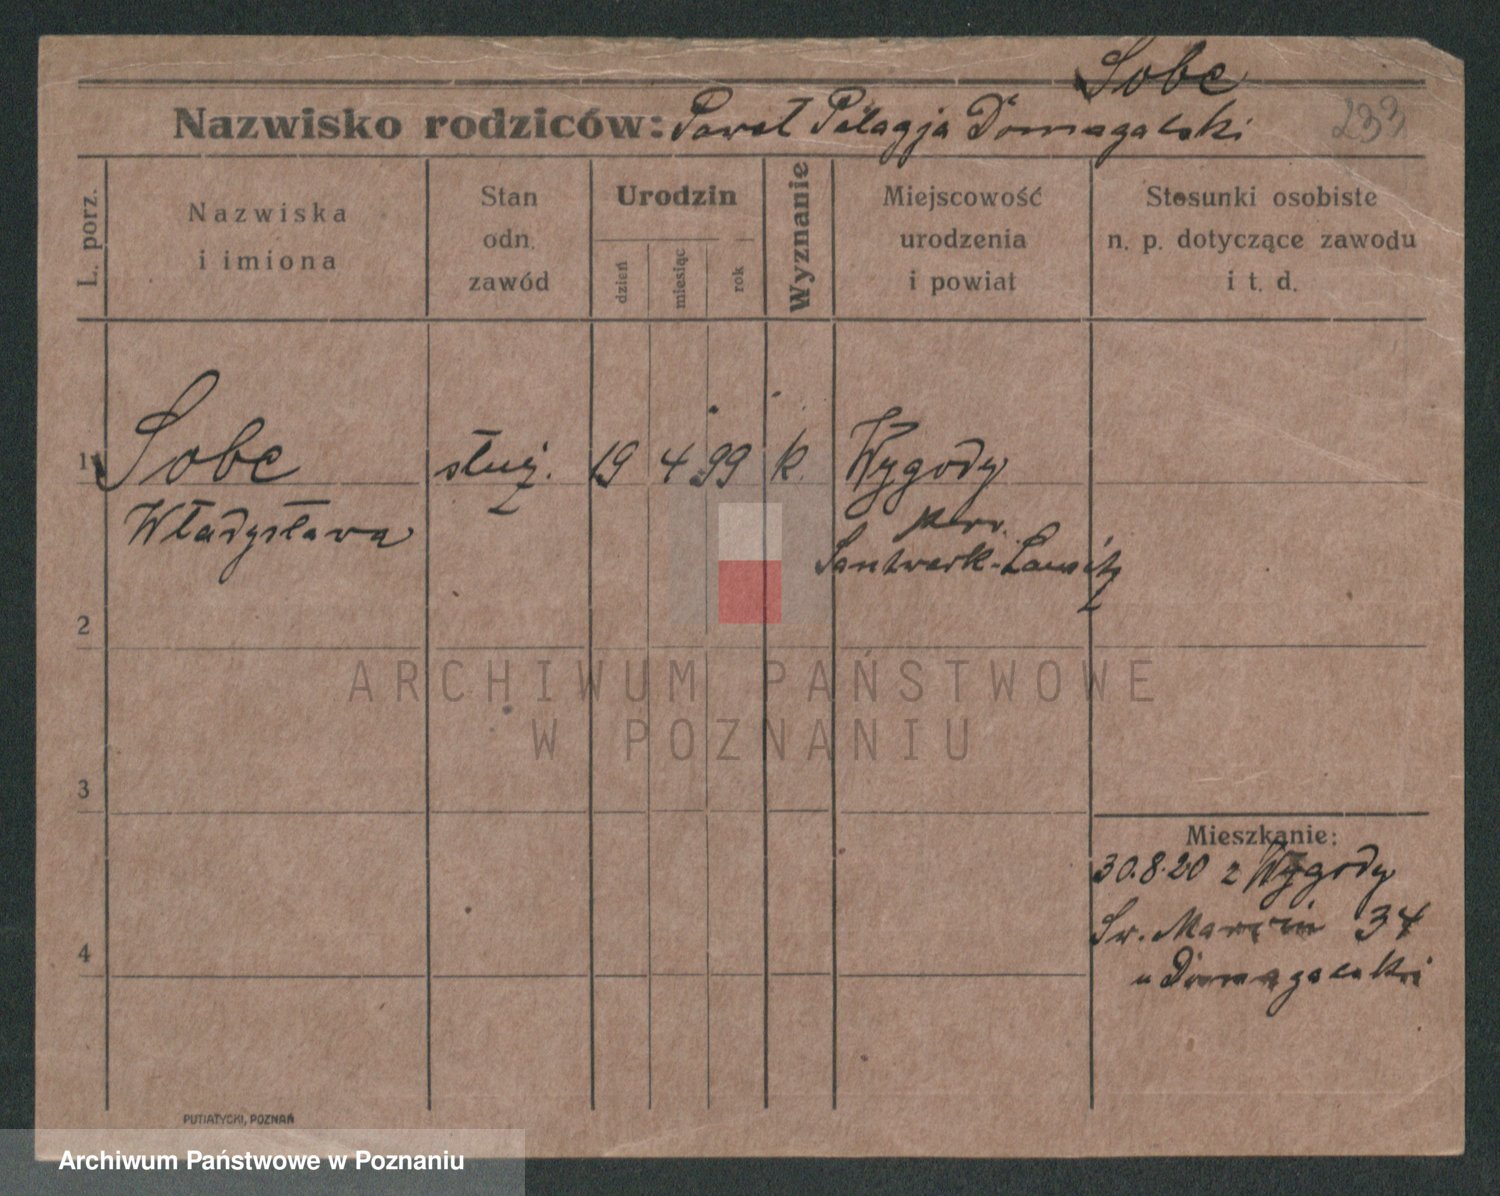 Sobc
Nazwisko rodziców: Paweł Pelagja Domagalski
233
L. porz.
Nazwiska
i imiona
Stan
odn.
zawód
Urodzin
dzień
miesiąc
rok
Wyznanie
Miejscowość
urodzenia
i powiat
Stosunki osobiste
n. p. dotyczące zawodu
i t. d.
1
Sobc
Władysława
służ.
19
4
99
k.
Wygody
pow.
2
3
4
Mieszkanie:
30.8.20 z Wygody
Św. Marcin 34
u Domagalski
PUTIATYCKI, POZNAŃ
ARCHIWUM PAŃSTWOWE
W POZNANIU
Archiwum Państwowe w Poznaniu